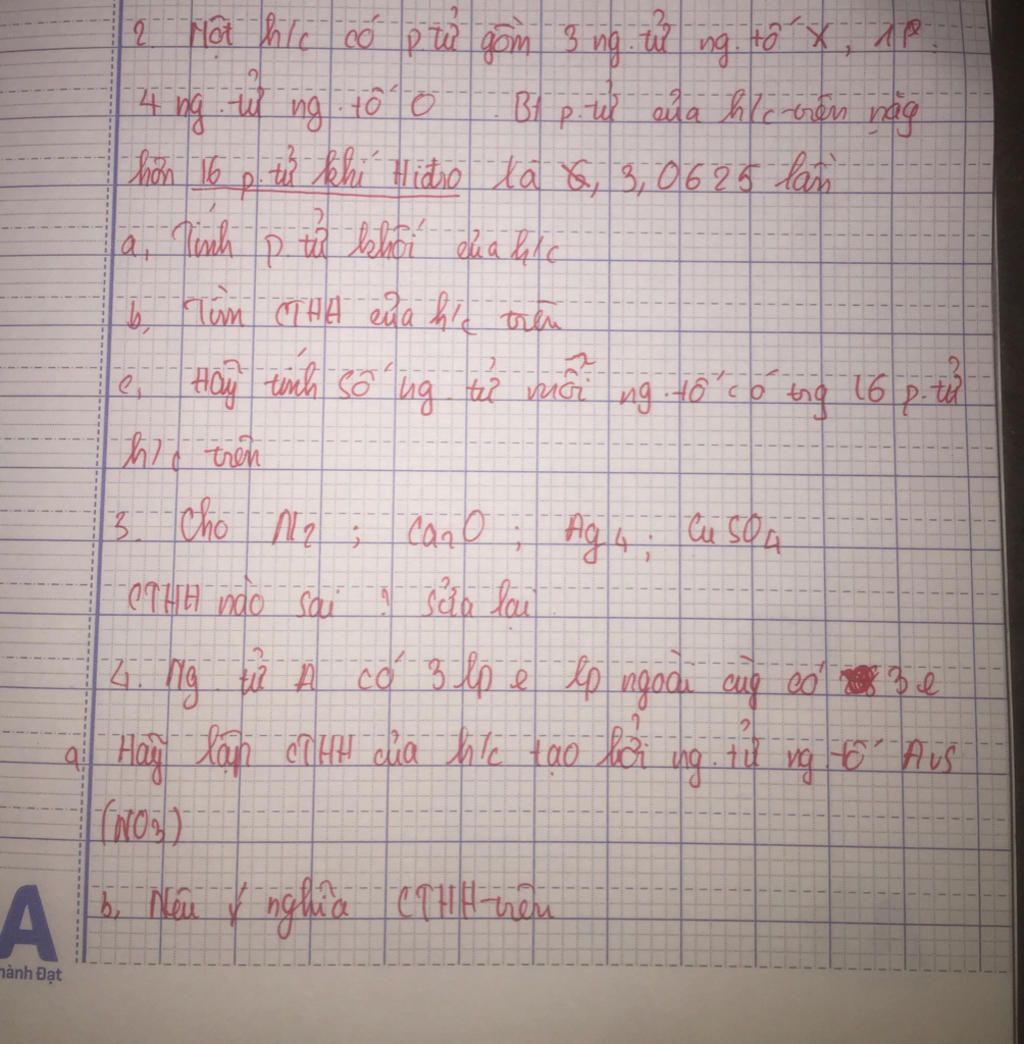 2. Một h/c có p.tử gồm 3 ng.tử ng.tố X, 1P.
4 ng.tử ng.tố O. B1 p.tử của h/c trên nặg
hơn 16 p.tử khí Hiđro là 3,0625 lần
a, Tính p.tử khối của h/c
b, Tìm CTHH của h/c trên
c, Hãy tính số ng.tử mỗi ng.tố có trg 16 p.tử
h/c trên
3. Cho N2 ; Ca2O ; Ag4 ; CuSO4
CTHH nào sai ? sửa lại.
4. Ng.tử A có 3 lp e lp ngoài cùg có 3e
a. Hãy lập CTHH của h/c tạo bởi ng.tử ng.tố A vs
(NO3)
b, Nêu ý nghĩa CTHH trên
A
hành Đạt